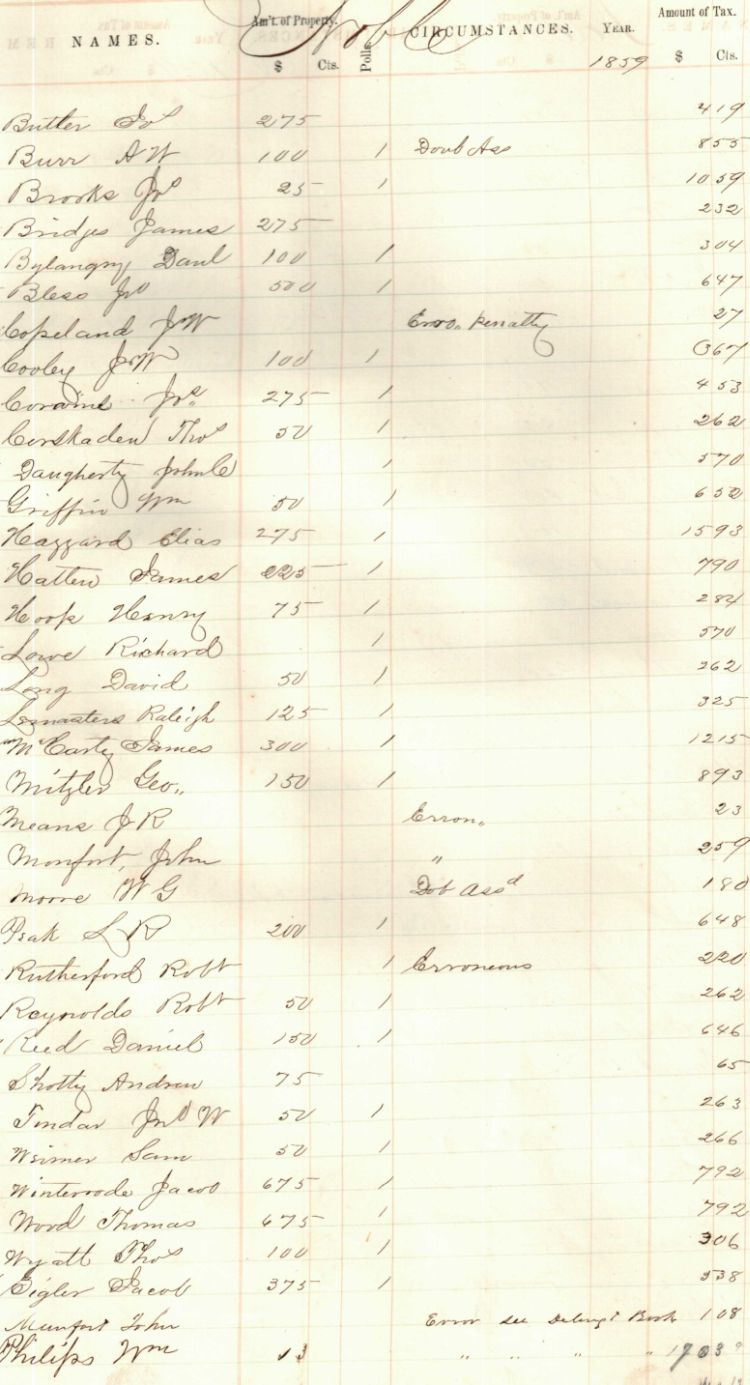 Noble
NAMES. Am't. of Property. Polls CIRCUMSTANCES. YEAR. Amount of Tax.
$ Cts. 1859 $ Cts.
Butler Jos 275 419
Burr A W 100 1 Doub Ass 855
Brooks Jos 25 1 1059
Bridges James 275 232
Bylangny Danl 100 1 304
Bless Jno 500 1 647
Copeland J W Erro. penalty 27
Cooley J W 100 1 367
Coraine Jos. 275 1 453
Corskaden Thos 50 1 262
Daugherty John C 1 570
Griffin Wm 50 1 652
Haggard Elias 275 1 1593
Hatten James 225 1 790
Hook Henry 75 1 284
Lowe Richard 1 570
Long David 50 1 262
Lemasters Raleigh 125 1 325
McCarty James 300 1 1215
Mitzler Geo,, 150 1 893
Means J R Erron. 23
Monfort, John " 259
Moore W G Dob assd 180
Peak L R 200 1 648
Rutherford Robt 1 Erroneous 220
Reynolds Robt 50 1 262
Reed Daniel 150 1 646
Shotty Andrew 75 65
Tindar Jno W 50 1 263
Weimer Sam 50 1 266
Winterrode Jacob 675 1 792
Wood Thomas 675 1 792
Wyatt Thos 100 1 306
Sigler Jacob 375 1 538
Munfort John Error see Delinqt Book 108
Philips Wm 13 " " " " 1703